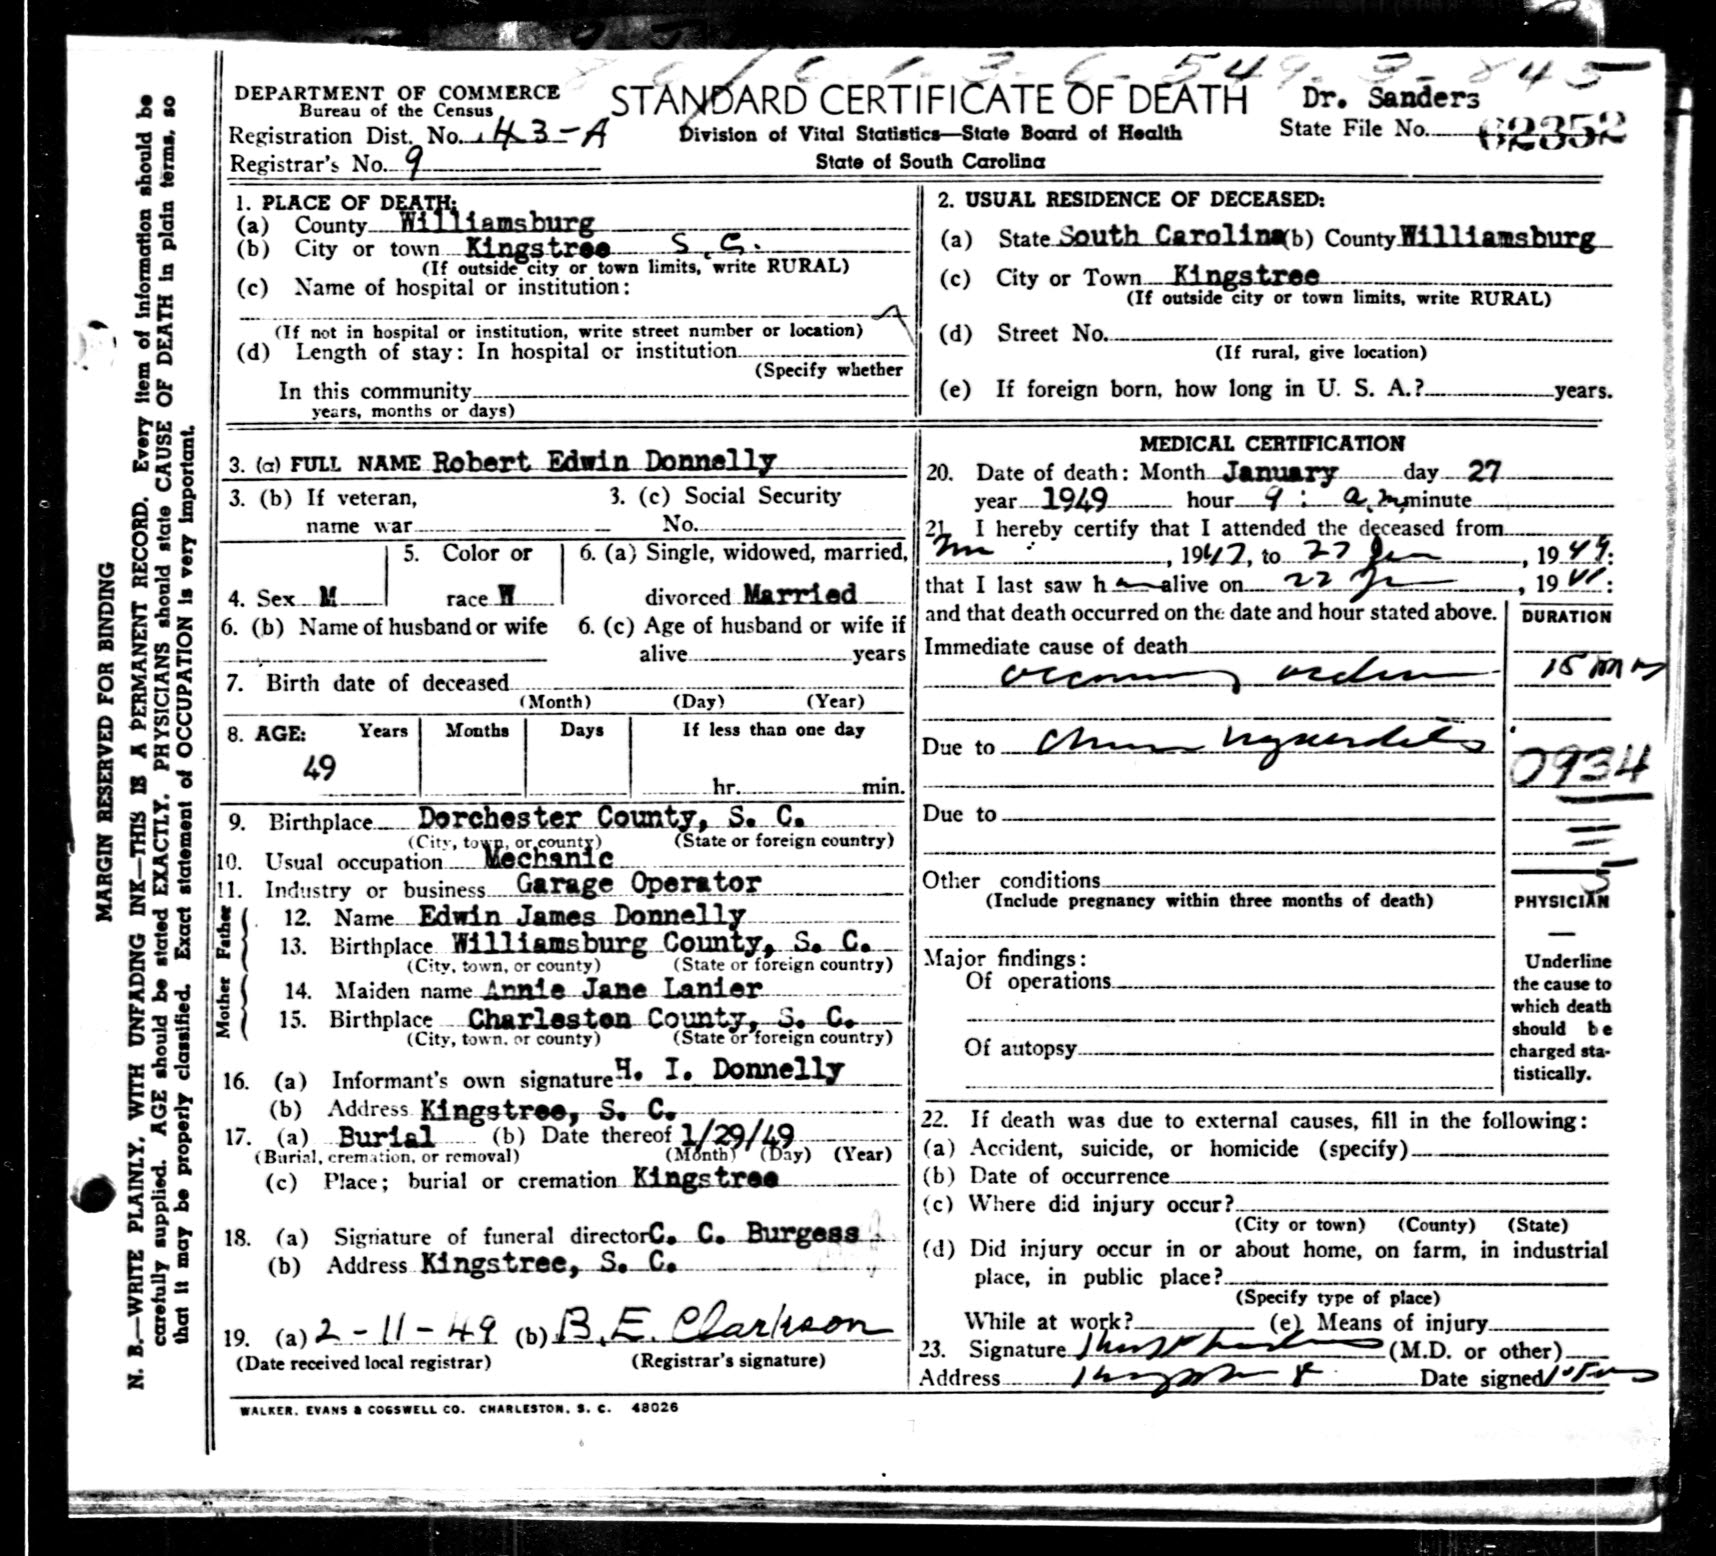 DEPARTMENT OF COMMERCE
Bureau of the Census
Registration Dist. No. 43-A
Registrar's No. 9
STANDARD CERTIFICATE OF DEATH
Division of Vital Statistics—State Board of Health
State of South Carolina
Dr. Sanders
State File No. 62352
1. PLACE OF DEATH:
(a) County Williamsburg
(b) City or town Kingstree S.C.
(If outside city or town limits, write RURAL)
(c) Name of hospital or institution:
(If not in hospital or institution, write street number or location)
(d) Length of stay: In hospital or institution
(Specify whether
In this community
years, months or days)
2. USUAL RESIDENCE OF DECEASED:
(a) State South Carolina (b) County Williamsburg
(c) City or Town Kingstree
(If outside city or town limits, write RURAL)
(d) Street No.
(If rural, give location)
(e) If foreign born, how long in U. S. A.? years.
3. (a) FULL NAME Robert Edwin Donnelly
3. (b) If veteran, 3. (c) Social Security
name war No.
4. Sex M
5. Color or
race W
6. (a) Single, widowed, married,
divorced Married
6. (b) Name of husband or wife
6. (c) Age of husband or wife if
alive years
7. Birth date of deceased
(Month) (Day) (Year)
8. AGE: Years Months Days If less than one day
49
hr. min.
9. Birthplace Dorchester County, S. C.
(City, town, or county) (State or foreign country)
10. Usual occupation Mechanic
11. Industry or business Garage Operator
Father
12. Name Edwin James Donnelly
13. Birthplace Williamsburg County, S. C.
(City, town, or county) (State or foreign country)
Mother
14. Maiden name Annie Jane Lanier
15. Birthplace Charleston County, S. C.
(City, town, or county) (State or foreign country)
16. (a) Informant's own signature H. I. Donnelly
(b) Address Kingstree, S. C.
17. (a) Burial (b) Date thereof 1/29/49
(Burial, cremation, or removal) (Month) (Day) (Year)
(c) Place; burial or cremation Kingstree
18. (a) Signature of funeral director C. C. Burgess
(b) Address Kingstree, S. C.
19. (a) 2-11-49 (b) B. E. Clarkson
(Date received local registrar) (Registrar's signature)
WALKER, EVANS & COGSWELL CO. CHARLESTON, S. C. 48026
MEDICAL CERTIFICATION
20. Date of death: Month January day 27
year 1949 hour 9: a.m. minute
21. I hereby certify that I attended the deceased from
, 1947, to 27 Jan, 1949:
that I last saw h alive on 22, 19:
and that death occurred on the date and hour stated above.
DURATION
Immediate cause of death
15
Due to
0934
Due to
Other conditions
(Include pregnancy within three months of death)
Major findings:
Of operations
Of autopsy
PHYSICIAN
Underline
the cause to
which death
should be
charged sta-
tistically.
22. If death was due to external causes, fill in the following:
(a) Accident, suicide, or homicide (specify)
(b) Date of occurrence
(c) Where did injury occur?
(City or town) (County) (State)
(d) Did injury occur in or about home, on farm, in industrial
place, in public place?
(Specify type of place)
While at work? (e) Means of injury
23. Signature (M.D. or other)
Address Date signed
MARGIN RESERVED FOR BINDING
N. B.—WRITE PLAINLY, WITH UNFADING INK—THIS IS A PERMANENT RECORD. Every item of information should be
carefully supplied. AGE should be stated EXACTLY. PHYSICIANS should state CAUSE OF DEATH in plain terms, so
that it may be properly classified. Exact statement of OCCUPATION is very important.